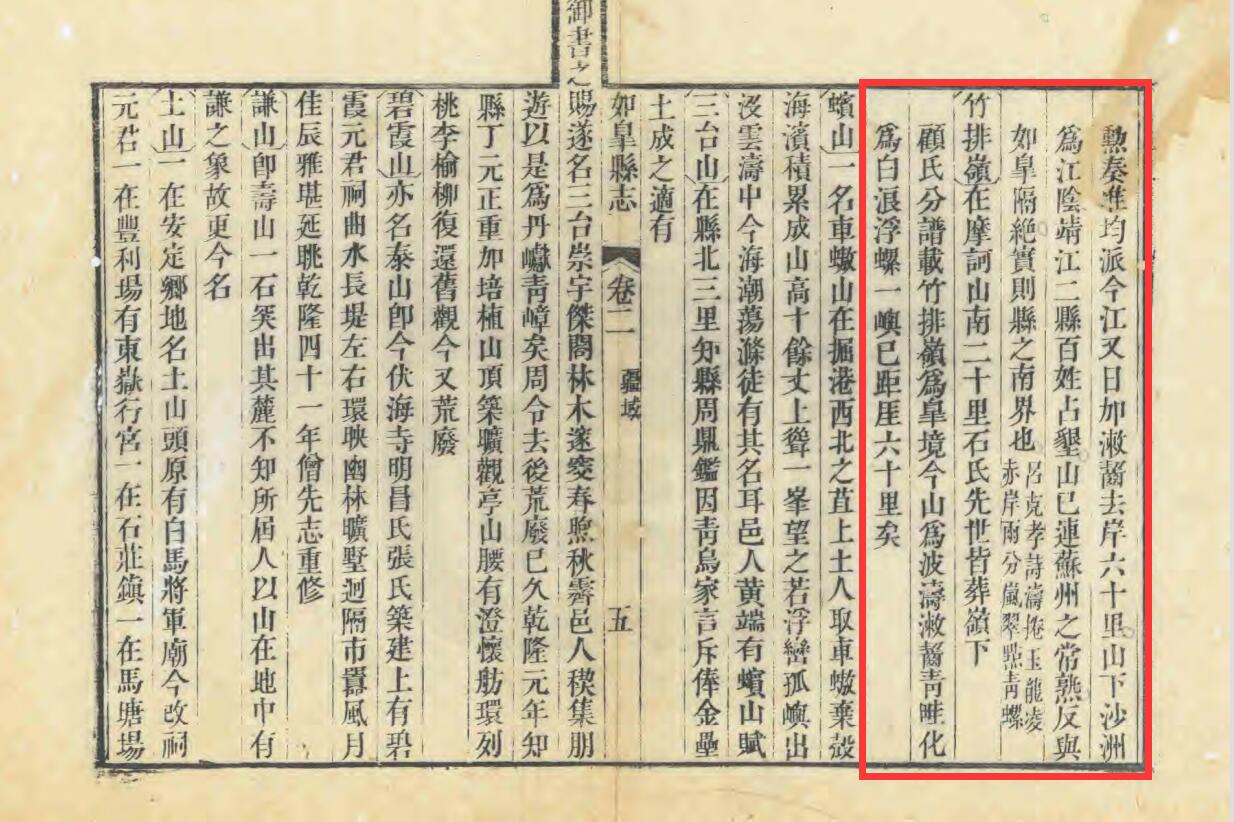 勲奏准均派今江又日加漱齧去岸六十里山下沙洲
為江陰靖江二縣百姓占墾山已連蘇州之常熟反與
如臯隔絕實則縣之南界也呂克孝詩濤捲玉龍凌
赤岸雨分嵐翠點青螺
竹排嶺在摩訶山南二十里石氏先世皆葬嶺下
顧氏分譜載竹排嶺為臯境今山為波濤漱齧青畦化
為白浪浮螺一嶼已距厓六十里矣
蠙山一名車螯山在掘港西北之苴上土人取車螯棄殼
海濱積累成山高十餘丈上聳一峯望之若浮巒孤嶼出
沒雲濤中今海潮蕩滌徒有其名耳邑人黃端有蠙山賦
三台山在縣北三里知縣周鼎鑑因青烏家言斥俸金壘
土成之適有
如臯縣志
卷二
疆域
五
御書之賜遂名三台崇宇傑閣林木邃窔春煦秋霽邑人稧集朋
遊以是為丹巘青嶂矣周令去後荒廢已久乾隆元年知
縣丁元正重加培植山頂築曠觀亭山腰有澄懷舫環列
桃李榆柳復還舊觀今又荒廢
碧霞山亦名泰山卽今伏海寺明昌氏張氏築建上有碧
霞元君祠曲水長堤左右環映幽林曠墅迥隔市囂風月
佳辰雅堪延眺乾隆四十一年僧先志重修
謙山卽壽山一石突出其麓不知所屆人以山在地中有
謙之象故更今名
土山一在安定鄉地名土山頭原有白馬將軍廟今改祠
元君一在豐利場有東嶽行宮一在石莊鎮一在馬塘場